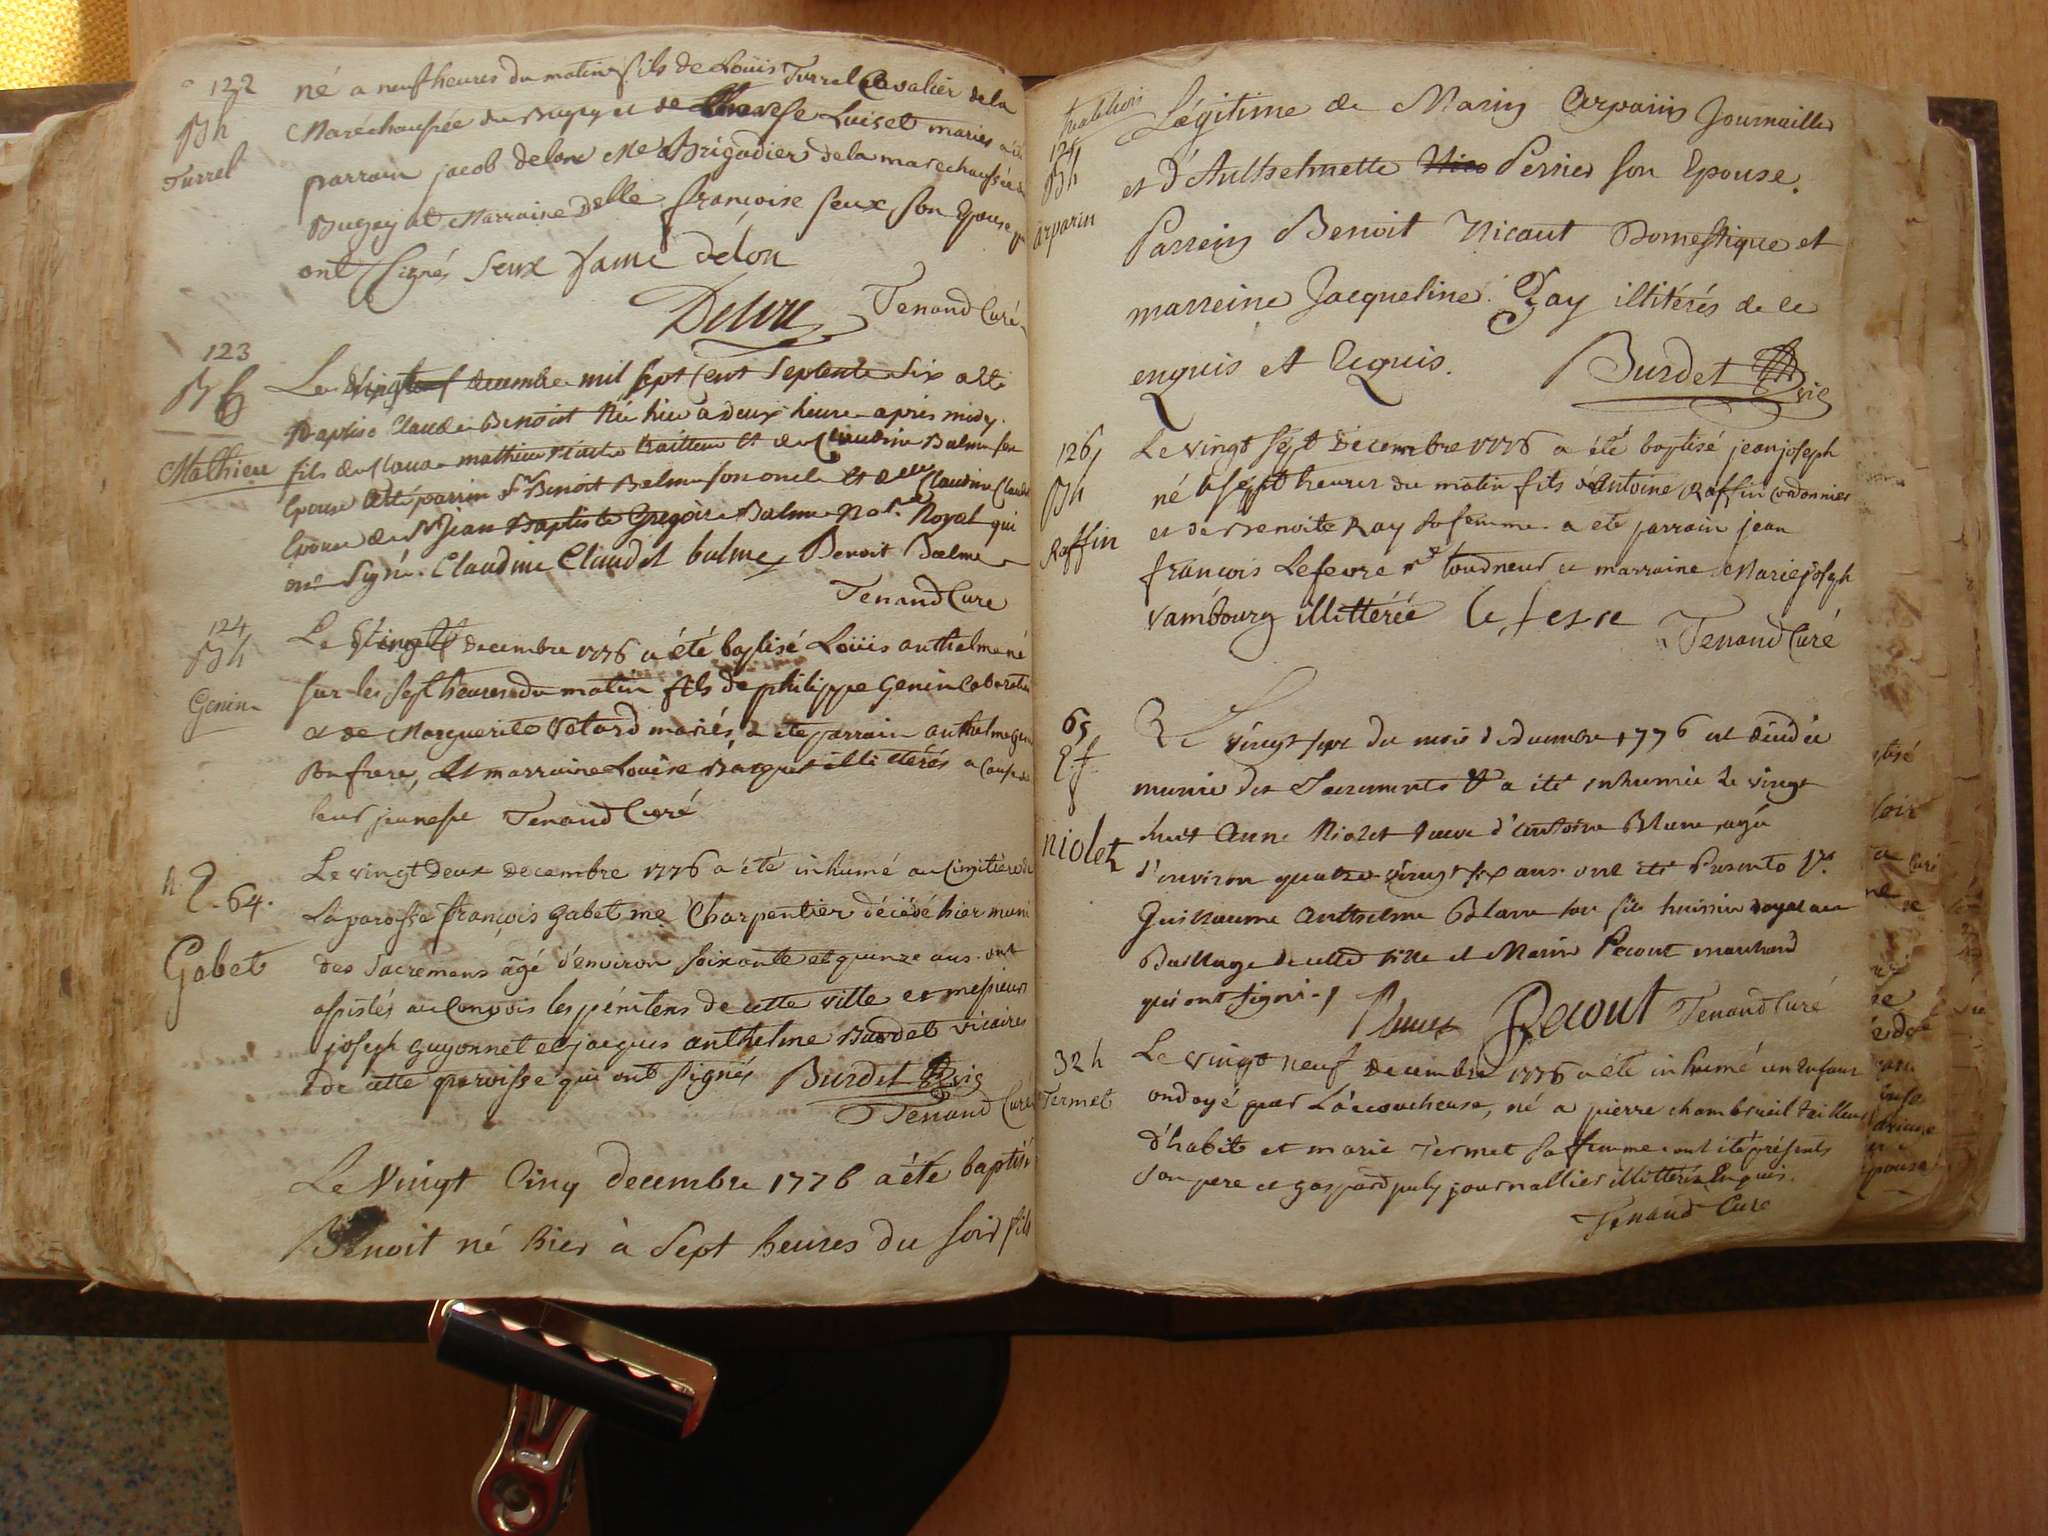 122
né a neuf heures du matin fils de Loüis Turrel Cavalier de la
Bh
Maréchaussée du Bugey et de Luiset mariés a été
Turrel
parrain jacob delorc Me Brigadier de la marechaussée
Bugey et Marraine Delle françoise seux son Epouse qui
ont signés seux fame délon
Tenand Curé
123
B G
Le decembre mil sept cent septente six a été
Baptisé Claude Benoist né hier a deux heure après midy
Mathieu
fils de Claude mathieu traitteur et de Claudine Balme son
Epouse a été parrin Sr Benoit Balme son oncle et delle Claudine Claudet
Epouse de Sr Jean Baptiste Gregoire Balme Not. Royal qui
ont signé. Claudine Claudet balme Benoit Balme
Tenand Cure
124
Bh
Genin
Le decembre 1776 a été baptisé Loüis anthelme né
sur les sept heures du matin fils de philippe Genin
et de Marguerite Vetard mariés, a ete parrain anthelme
son frere, et marraine Louise illitérés a cause de
leur jeunesse Tenand Curé
h. E 64.
Gabet
Le vingt Deux decembre 1776 a été inhumé au Cimitière de
La paroisse françois Gabet me Charpentier décédé hier muni
des sacremens âgé d'environ soixante et quinze ans. ont
assistés au Convois les pénitens de cette ville et messieurs
joseph guyonnet et jacques anthelme Burdet vicaires
de cette paroisse qui ont signés Burdet vic
Tenand Curé
Le Vingt Cinq decembre 1776 a été baptisé
Benoit né hier à sept heures du soir fils
125
Bh
arparin
Légitime de Marin Carparin Journaillier
et d'Anthelmette Perrier son Epouse.
Parrein Benoit Nicaut Domestique et
marreine Jacqueline Gay illitérés de ce
enquis et Requis. Burdet vic
126
Bh
Raffin
Le vingt sept decembre 1776 a été baptisé jean joseph
né a sept heures du matin fils d'Antoine Raffin cordonnier
et de Benoite Ray sa femme a été parrain jean
françois Lefevre tourneur et marraine Marie joseph
vambourg illittérée le fevre
Tenand Curé
65
Ef
niolet
Le vingt sept du mois de decembre 1776 est décédée
munie des Sacrements et a été inhumée le vingt
huit Anne Niolet veuve d'antoine Blanc agée
d'environ quatre vingt six ans. ont été Presents Sr
Guillaume Anthelme Blanc son fils huissier royal au
Baillage de cette ville et Marin Pecout marchand
qui ont signé. Pecout Tenand Curé
32 h
Termet
Le vingt neuf decembre 1776 a été inhumé un enfant
ondoyé par L'accoucheuse, né a pierre chambrueil tailleur
d'habits et marie Termet sa femme ont été présents
son pere et gaspard puly journallier illitterés Enquis.
Tenand Curé